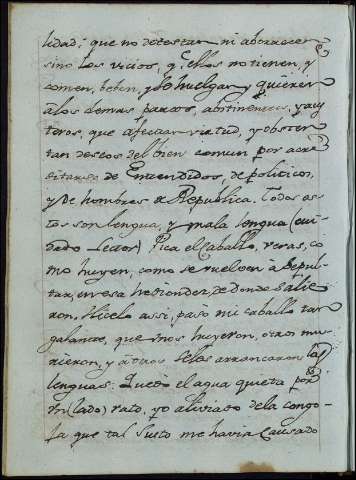 lidad; que no detestan ni aborrecen
sino los vicios, q ellos no tienen, y
comen, beben, y se huelgan y quieren
a los demas parcos, abstinentes, y aus
teros, que afectan virtud, y obsten
tan deseos del bien comun por acre
ditarse de Entendidos, de politicos,
y de hombres de Republica. Todos es
tos son lengua, y mala lengua (cui
dado Lector) Pica el Caballo, veras, co
mo huyen, como se vuelven a Sepul
tar, en esa hediondez, de donde salie
ron. Hicelo assi, passo mi caballo tan
galante, que unos huyeron, otros mu
rieron, y a otros se les arrancaron las
lenguas. Quedó el agua quieta por
un (lado) rato, yo aliviado de la congo
ja que tal susto me havia Causado